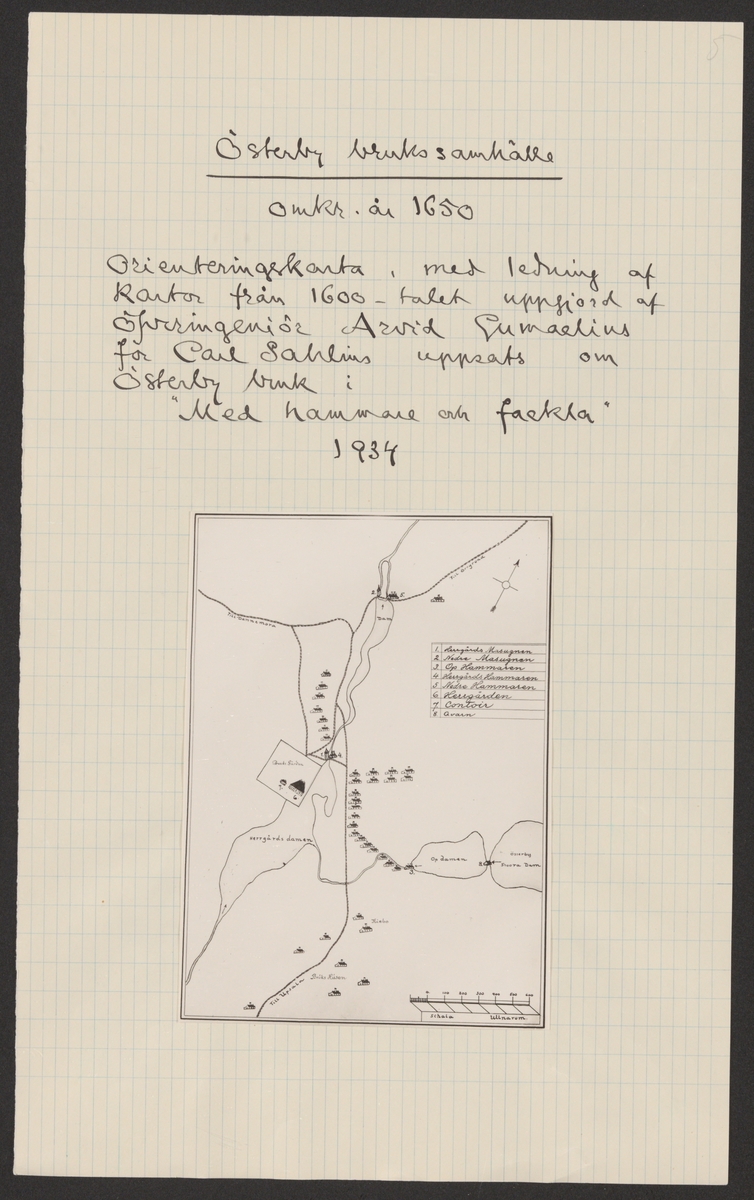 5
Österby brukssamhälle
omkr. år 1650
Orienteringskarta, med ledning af
kartor från 1600-talet uppgjord af
Öfveringeniör Arvid Gumaelius
för Carl Sahlins uppsats om
Österby bruk i
"Med hammare och fackla"
1934
Till Dannemora
2
5
Dam
1. Herrgårds Masugnen
2 Nedre Masugnen
3. Op Hammaren
4 Herrgårds Hammaren
5 Nedre Hammaren
6 Herrgården
7 Contoir
8 Qvarn
1
4.
6
Herrgårds damen
Op damen
8
Österby
Stoora Dam
3.
Till Upsala
0 100 200 300 400 500 600
Schala Ullnarum